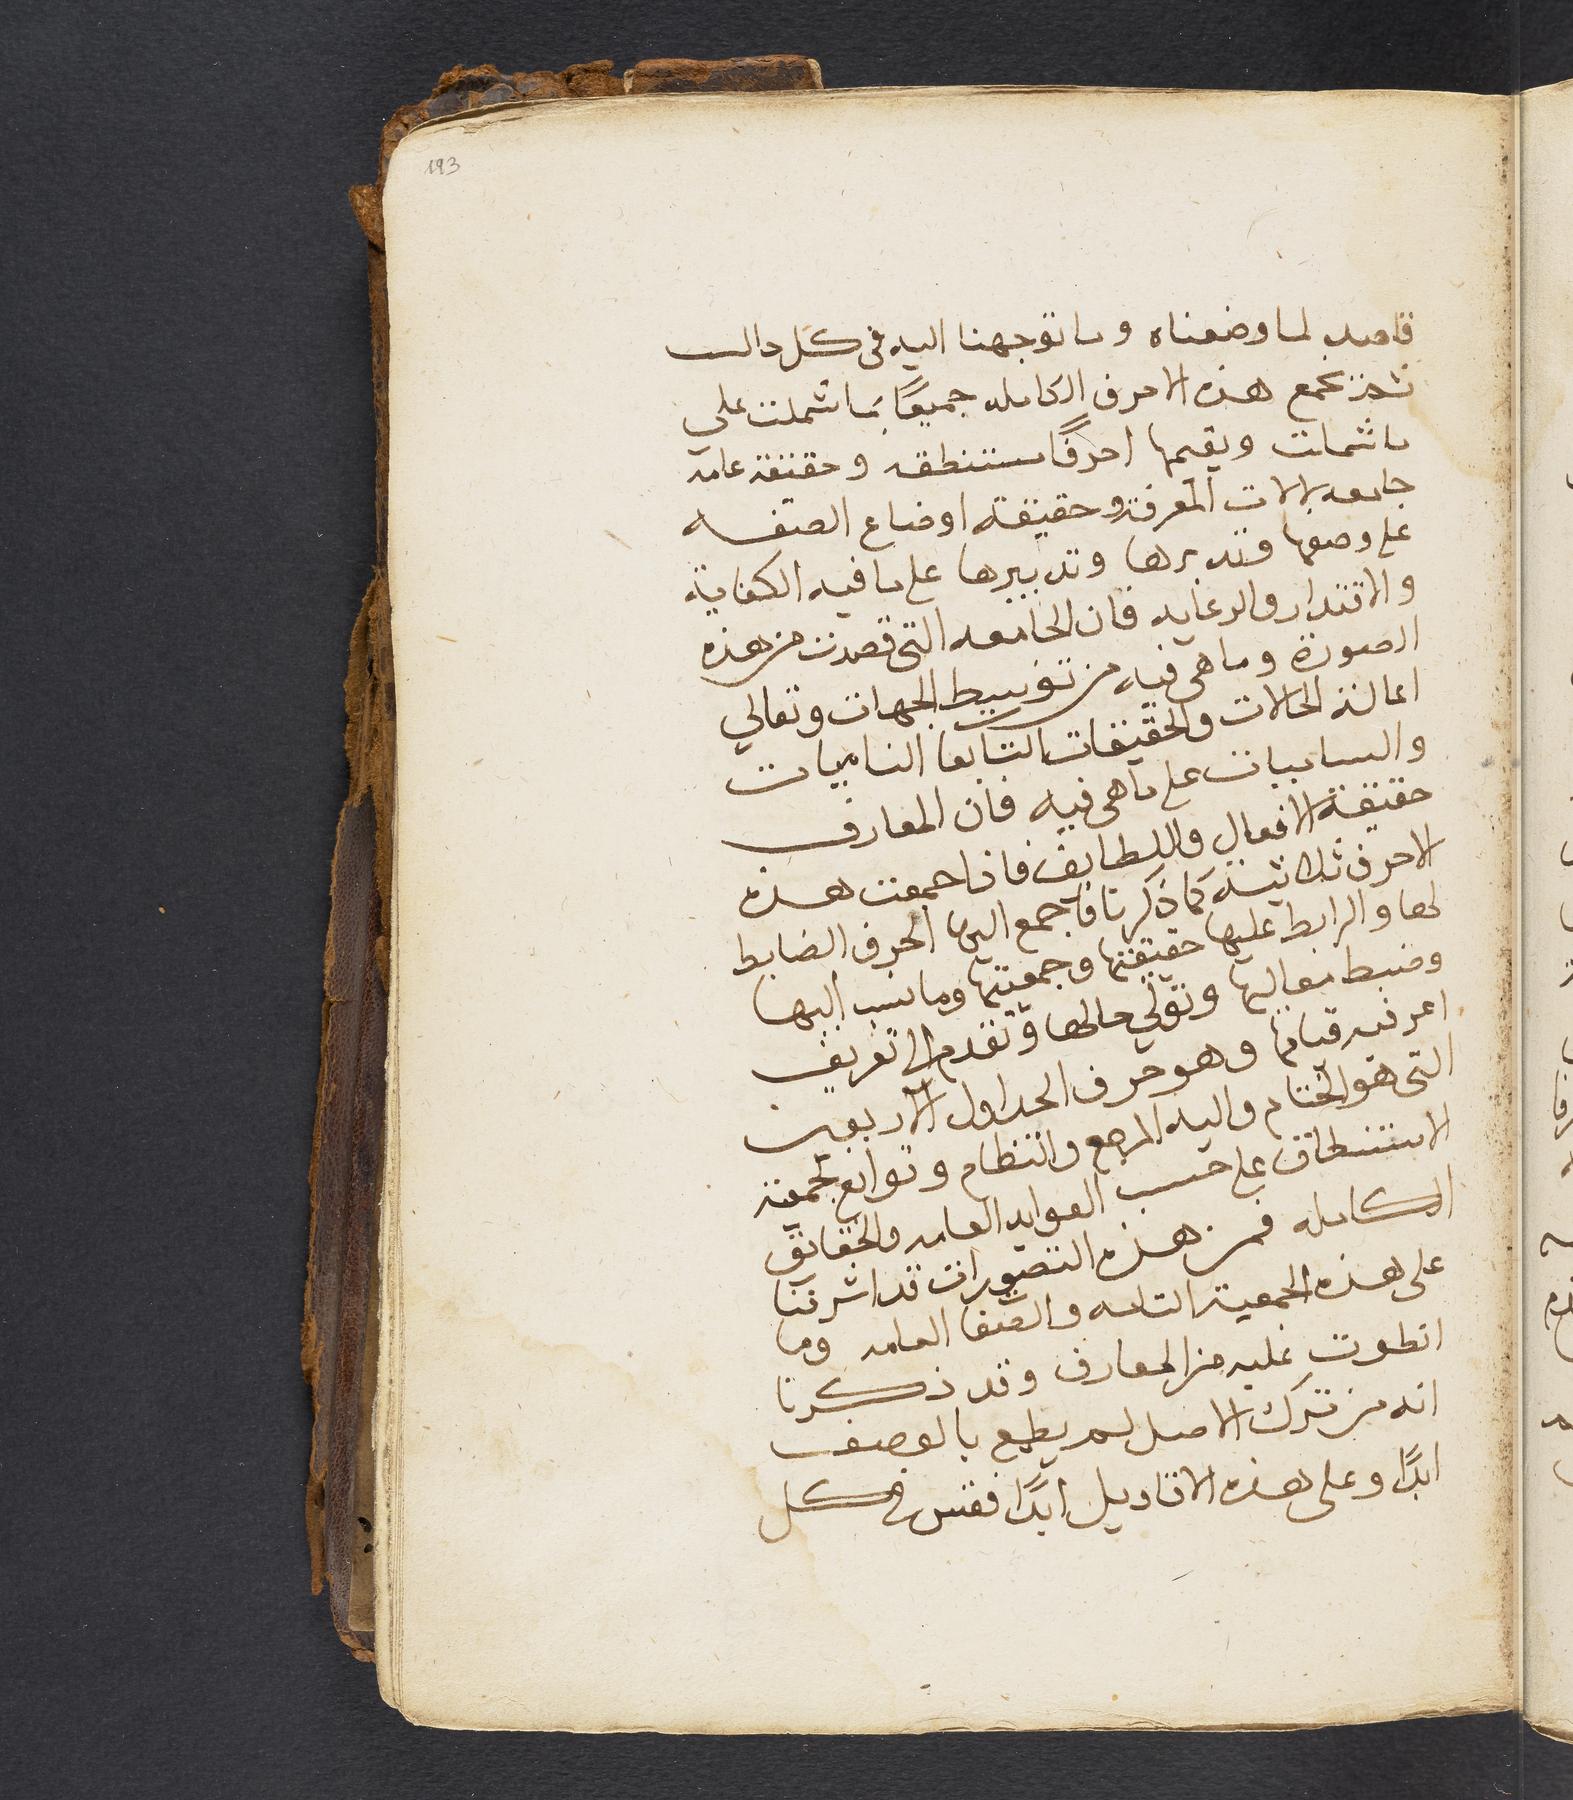 193
قاصد لما وضعناه وما توجهنا اليه في كل دالت
نجمع هذه الاحرف الكامله جميعًا بما شملت علي
ما شملت ويقيمها احرفًا مستنطقه وحقيقة عامه
جامعه بالات المعرفة وحقيقة اوضاع الصفه
على وصفها وتدبرها وتدبيرها على ما فيه الكفاية
والاقتدار والرعايه فان الجامعه التي قصدت من هذه
الصورة وما هي فيه من توسيط الجهات وتعالي
امالة الحالات والحقيقات التابعا الناميات
والساميات على ما هي فيه فان المعارف
حقيقة الافعال واللطايف فاذا جمعت هذه
الاحرف ثلاثية كما ذكرنا فاجمع اليها الحرف الضابط
لها والرابط عليها حقيقتها وجمعيتها وما نسب اليها
وضبط معاليها وتولي حالها وتقدم الي تعريف
اعرفيه قيامها وهو حرف الجداول الاربعين
التي هو الختام واليه المرجع وانتظام وتوابع جمعية
الاستنطاق على حسب العوايد العامه والحقايق
الكامله فمن هذه التصورات قد اشرفنا
على هذه الجمعية التامه والصفا العامه وما
انطوت عليه من المعارف وقد ذكرنا
انه من ترك الاصل لم يطمع بالوصف
ابدًا وعلى هذه الاقاويل ابدًا فقس في كل